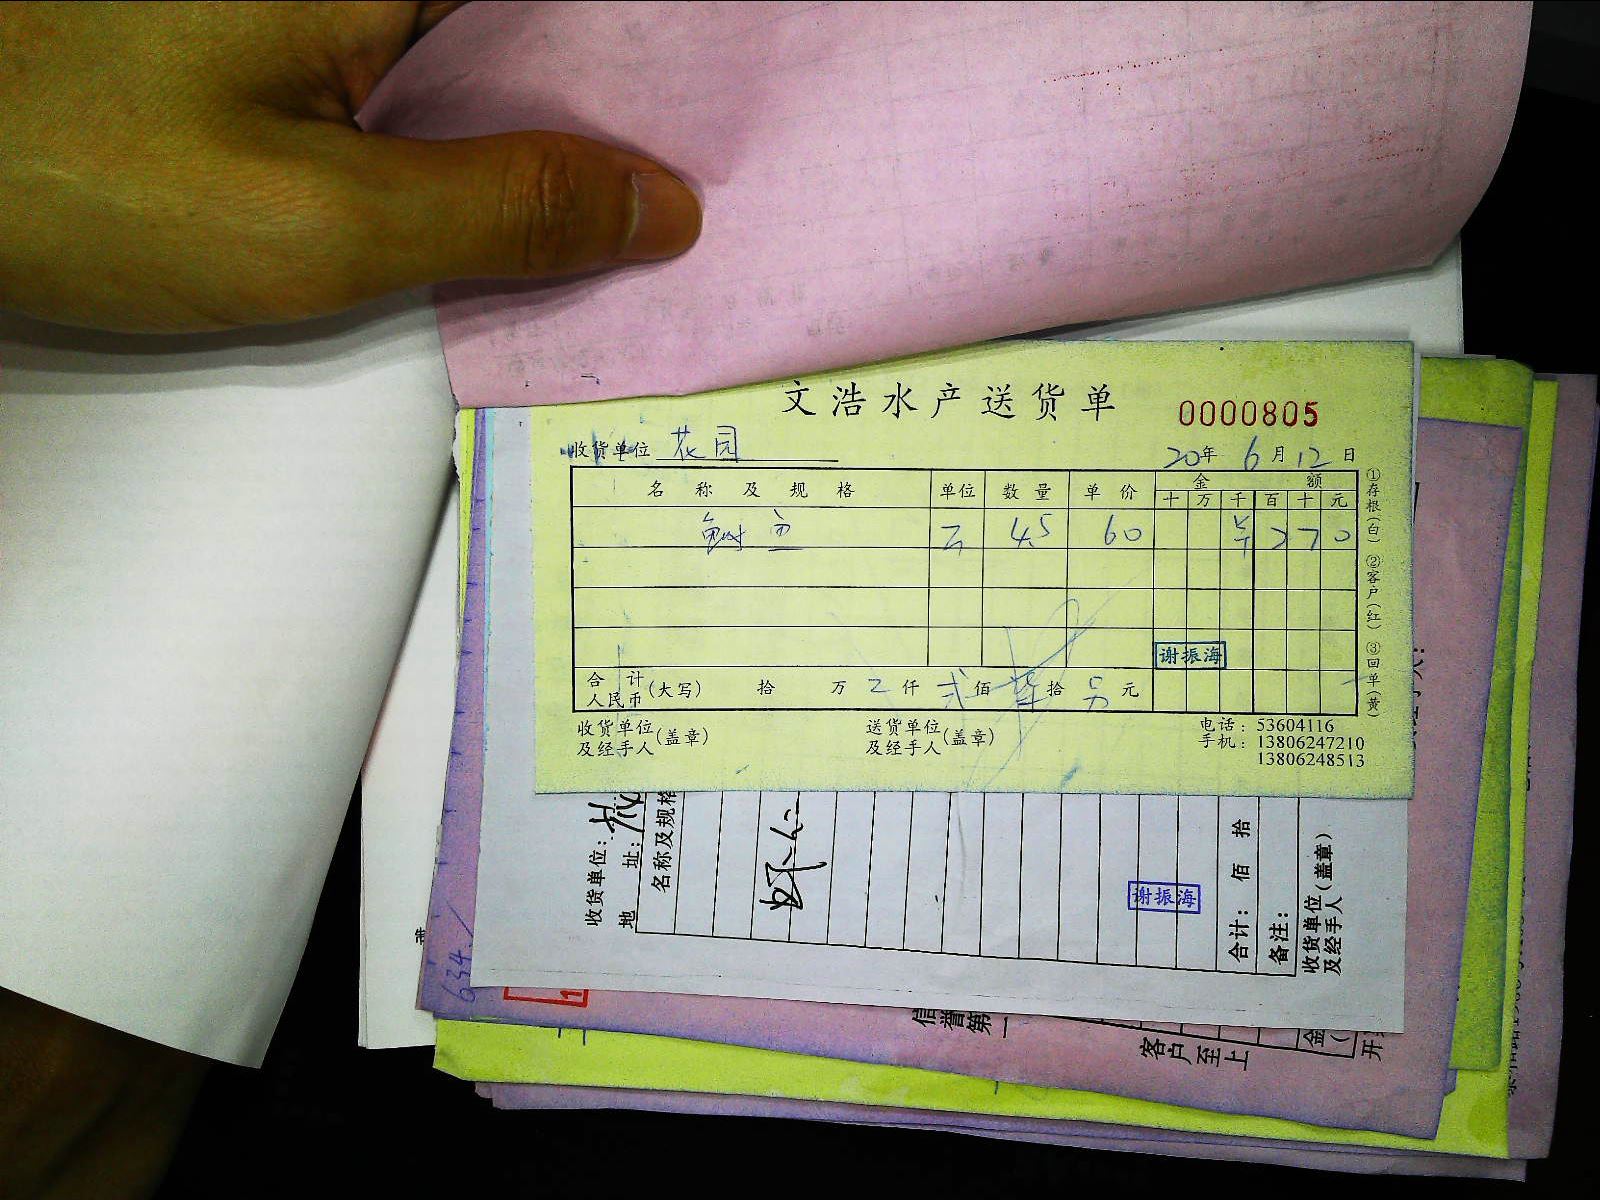 文浩水产送货单 0000805
收货单位 花园 20年 6月12日
名称及规格 单位 数量 单价 金额
十 万 千 百 十 元
4.5 60 ¥ 2 7 0
谢振海
合计人民币(大写) 拾 万 仟 贰佰 柒拾 另元
收货单位及经手人(盖章) 送货单位及经手人(盖章) 电话:53604116
手机:13806247210
13806248513
①存根(白) ②客户(红) ③回单(黄)
收货单位:
地址:
名称及规格
谢振海
合计: 佰 拾
备注:
收货单位及经手人(盖章)
634.
信誉第一
客户至上